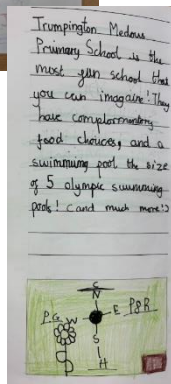 Trumpington Medows
Primary School is the
most fun school that
you can imagaine! They
have complormentory
food choices, and a
swimming pool the size
of 5 olympic swimming
pools! (and much more!)
N
W
P.G
E P&R
S
H